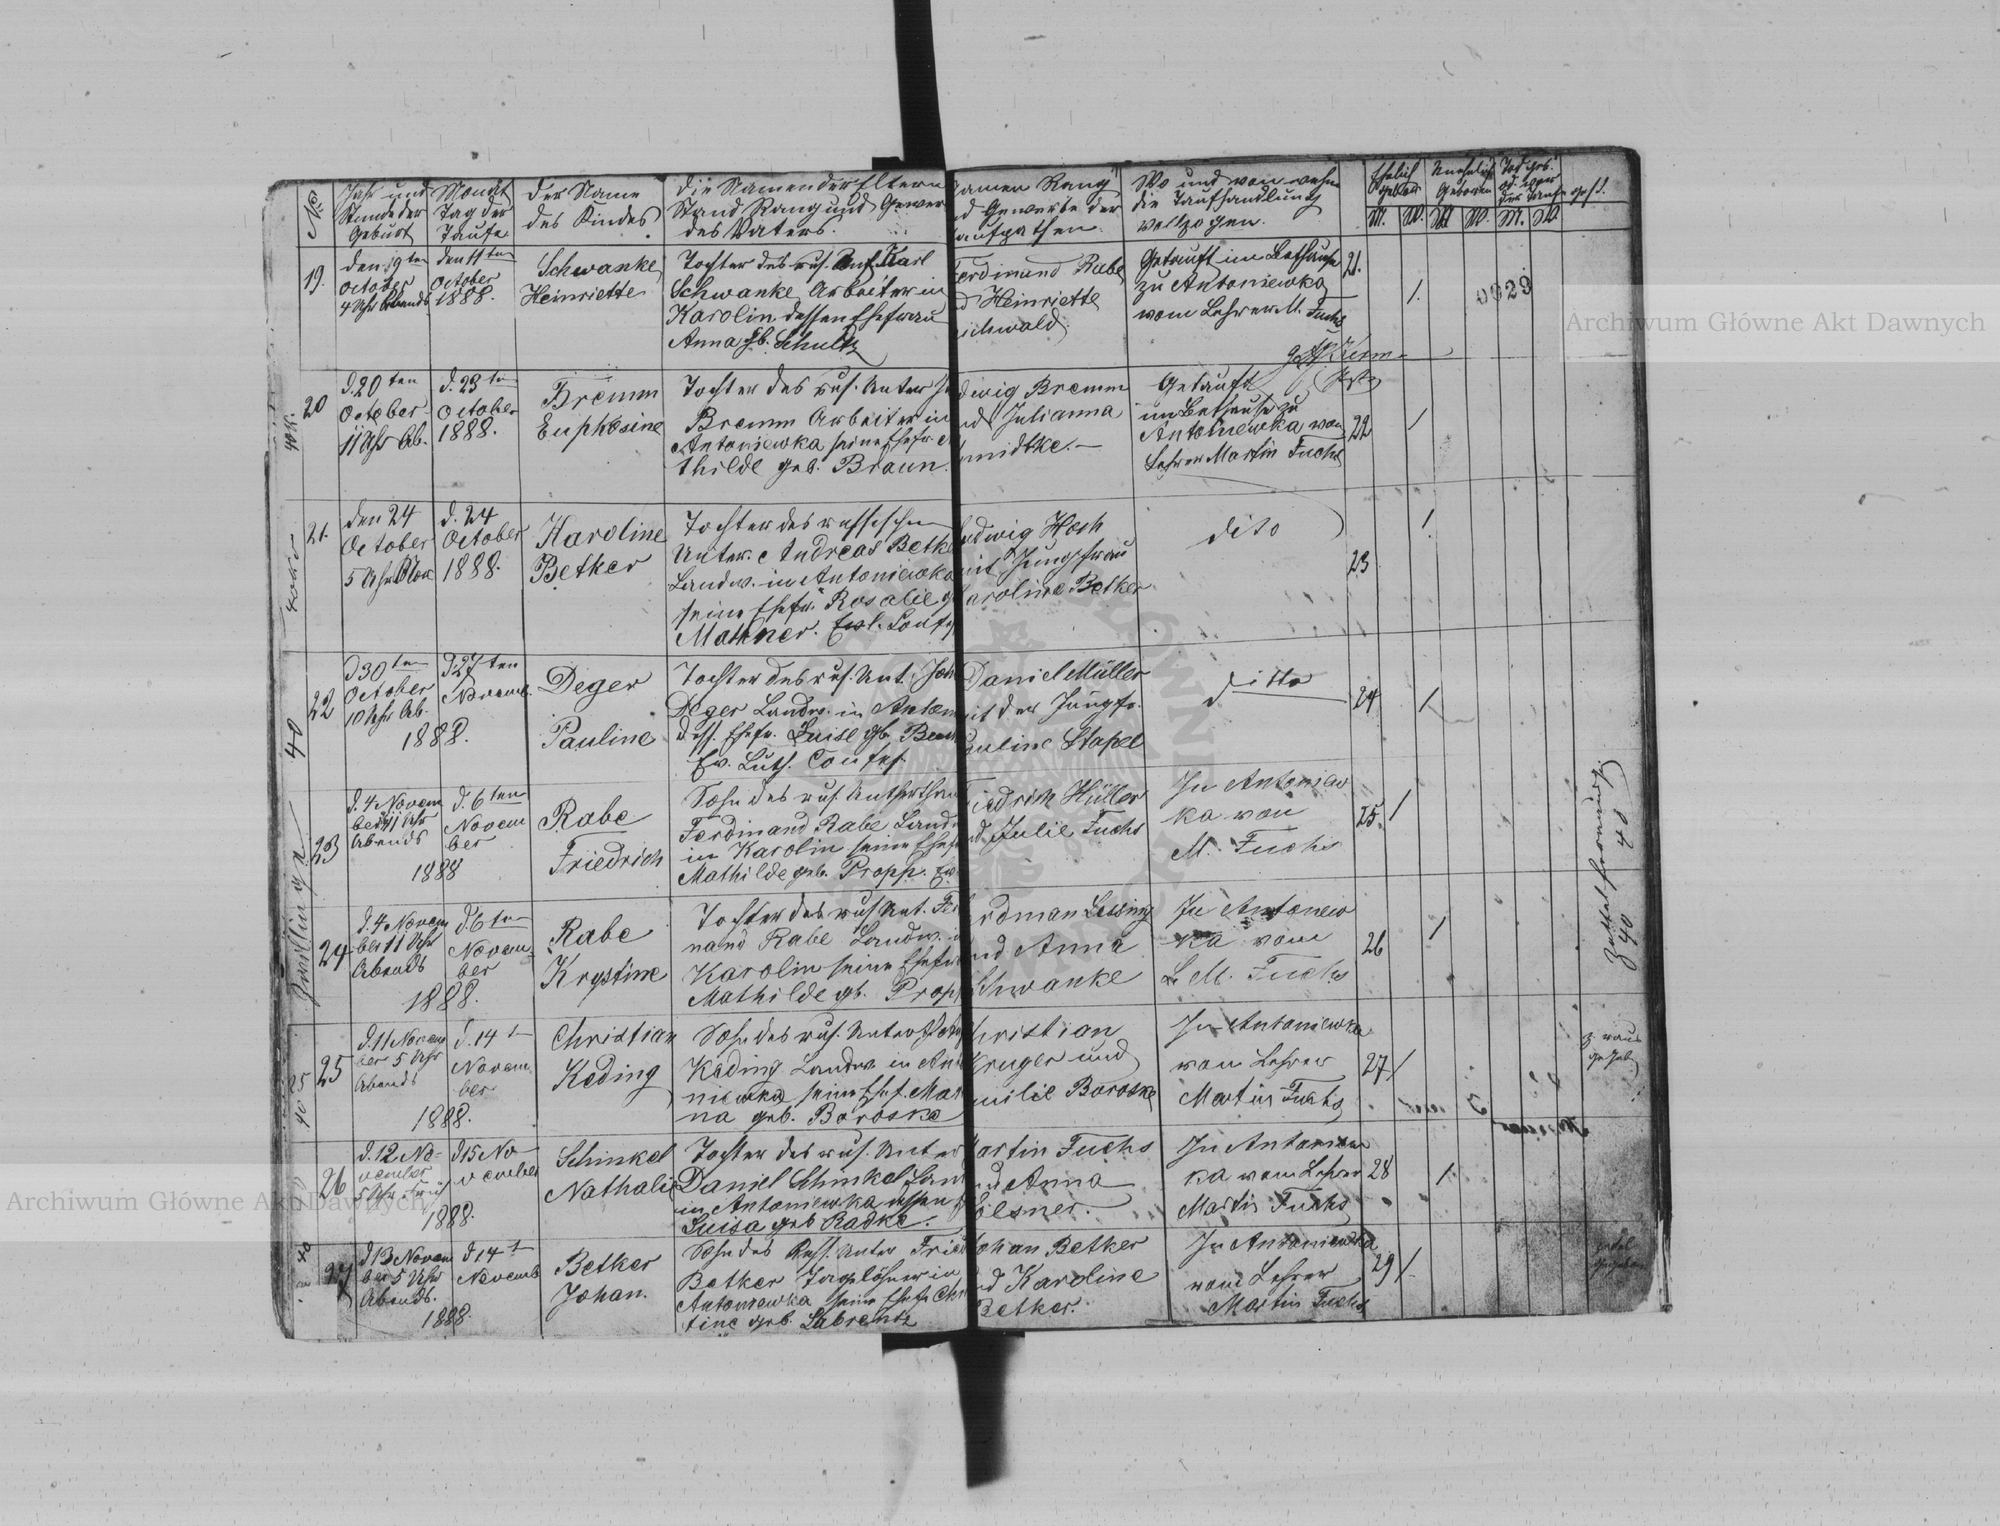 No.
Jahr und
Stunde der
Geburt
Monat
Tag der
Taufe
Der Name
des Kindes
Die Namen der Eltern
Stand Rang und Gewer
des Vaters.
amen Rang
d Gewerbe der
aufpathen.
Wo und von wehm
die Taufhandlung
vollzogen.
Ehelich
Geboren
M. W. M. W. M. W.
19.
den 19ten
October
4 Uhr Abends
den 11ten
October
1888.
Schwanke
Heinriette
Tochter des rus. Unt. Karl
Schwanke Arbeiter in
Karolin dessen Ehefrau
Anna gb. Schultz
Ferdinand Rabe
d Heinriette
ichwald.
Getauft im Bethause
zu Antoniewka
vom Lehrer M. Fuchs
21.
1.
20
d. 20ten
October
11 Uhr Ab.
d. 23ten
October
1888.
Bremm
Euphosine
Tochter des rus. Unter
Bremm Arbeiter in
Antoniewka seine Ehefr.
thilde geb. Braun.
dwig Bremm
nd Julianna
midtke.
Getauft
im Bethause zu
Antoniewka von
Lehrer Martin Fuchs
22
1
21.
den 24
October
5 Uhr
d. 24
October
1888.
Karoline
Betker
Tochter des russischen
Unter. Andreas Betke
Landw. in Antoniewka
seine Ehefr. Rosalie g
Mathner. Evl.
udwig Hoch
mit Jungfrau
aroline Betker
dito
23
1.
22
d 30ten
October
10 Uhr Ab.
d. 27ten
Novemb.
1888.
Deger
Pauline
Tochter des rus. Unt. Joh
Deger Landw. in Anton
dess. Ehefr. Luise gb.
Ev. Luth. Confes.
Daniel Müller
mit der Jungfr.
auline Stapel
ditto
24
1
23
d. 4 Novem
ber 11 Uhr
Abends
d. 6ten
Novem
ber
1888
Rabe
Friedrich
Sohn des rus. Unterthan
Ferdinand Rabe Landw
in Karolin seine Ehef
Mathilde geb. Propp. Ev
riedrich Hüller
d. Julie Fuchs
In Antoniew
ka von
M. Fuchs
25.
1
24
d. 4 Novem
ber 11 Uhr
Abends
d 6ten
Novem
ber
1888.
Rabe
Krystine
Tochter des rus Unt. Ferd
nand Rabe Landw. i
Karolin seine Ehefr
Mathilde gb. Prop
rdman Lessing
nd Anna
chwanke
In Antoniew
ka vom
L. M. Fuchs
26
1
25
d. 11 Novem
ber 5 Uhr
Abends
d. 14
Novem
ber
1888.
Christian
Keding
Sohn des rus. Unter
Käding Landw. in Ant
niewka seine Ehef. Mar
na geb. Boroske
hristian
Kruger und
milie Boroske
In Antoniewka
vom Lehrer
Martin Fuchs
27
1
26
d. 12 No-
vember
5 Uhr Früh
d 15 No
vember
1888.
Schinkel
Nathalie
Tochter des rus. Unter
Daniel Schinkel Lan
in Antoniewka dessen
Luisa geb Radke.
artin Fuchs
nd Anna
ölsner.
In Antoniew
ka vom Lehrer
Martin Fuchs
28
1.
27
d 13 Novem
ber 5 Uhr
Abends.
d 14
Novemb
1888.
Betker
Johan.
Sohn des Russ. Unter Fried
Betker Tagelöhner in
Antoniewka seine Ehefr Chri
tine geb. Labrentz
ohan Betker
nd Karoline
Betker.
In Antoniewka
vom Lehrer
Martin Fuchs
29
1.
Archiwum Główne Akt Dawnych
Archiwum Główne Akt Dawnych